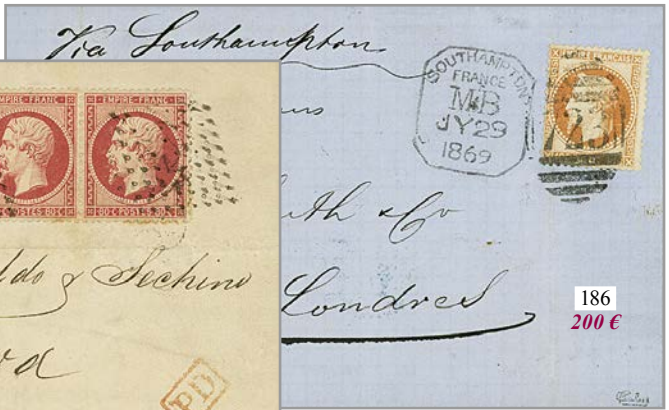 Via Southampton
SOUTHAMPTON
FRANCE
M·B
JY 29
1869
723
& Co
Londres
186
200 €
EMPIRE · FRANC · EMPIRE · FRANC
POSTES 80·C· 80·C·POSTES·80·
ldo y Sechino
PD